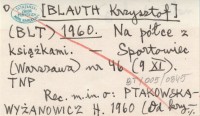 D [BLAUTH Krzysztof]
(BLT) 1960. Na półce z
książkami. - Sportowiec
(Warszawa) nr 46 (9 XI).
TNP
Rec. m.in o: PTAKOWSKA-
WYŻANOWICZ H. 1960 (Od kory-